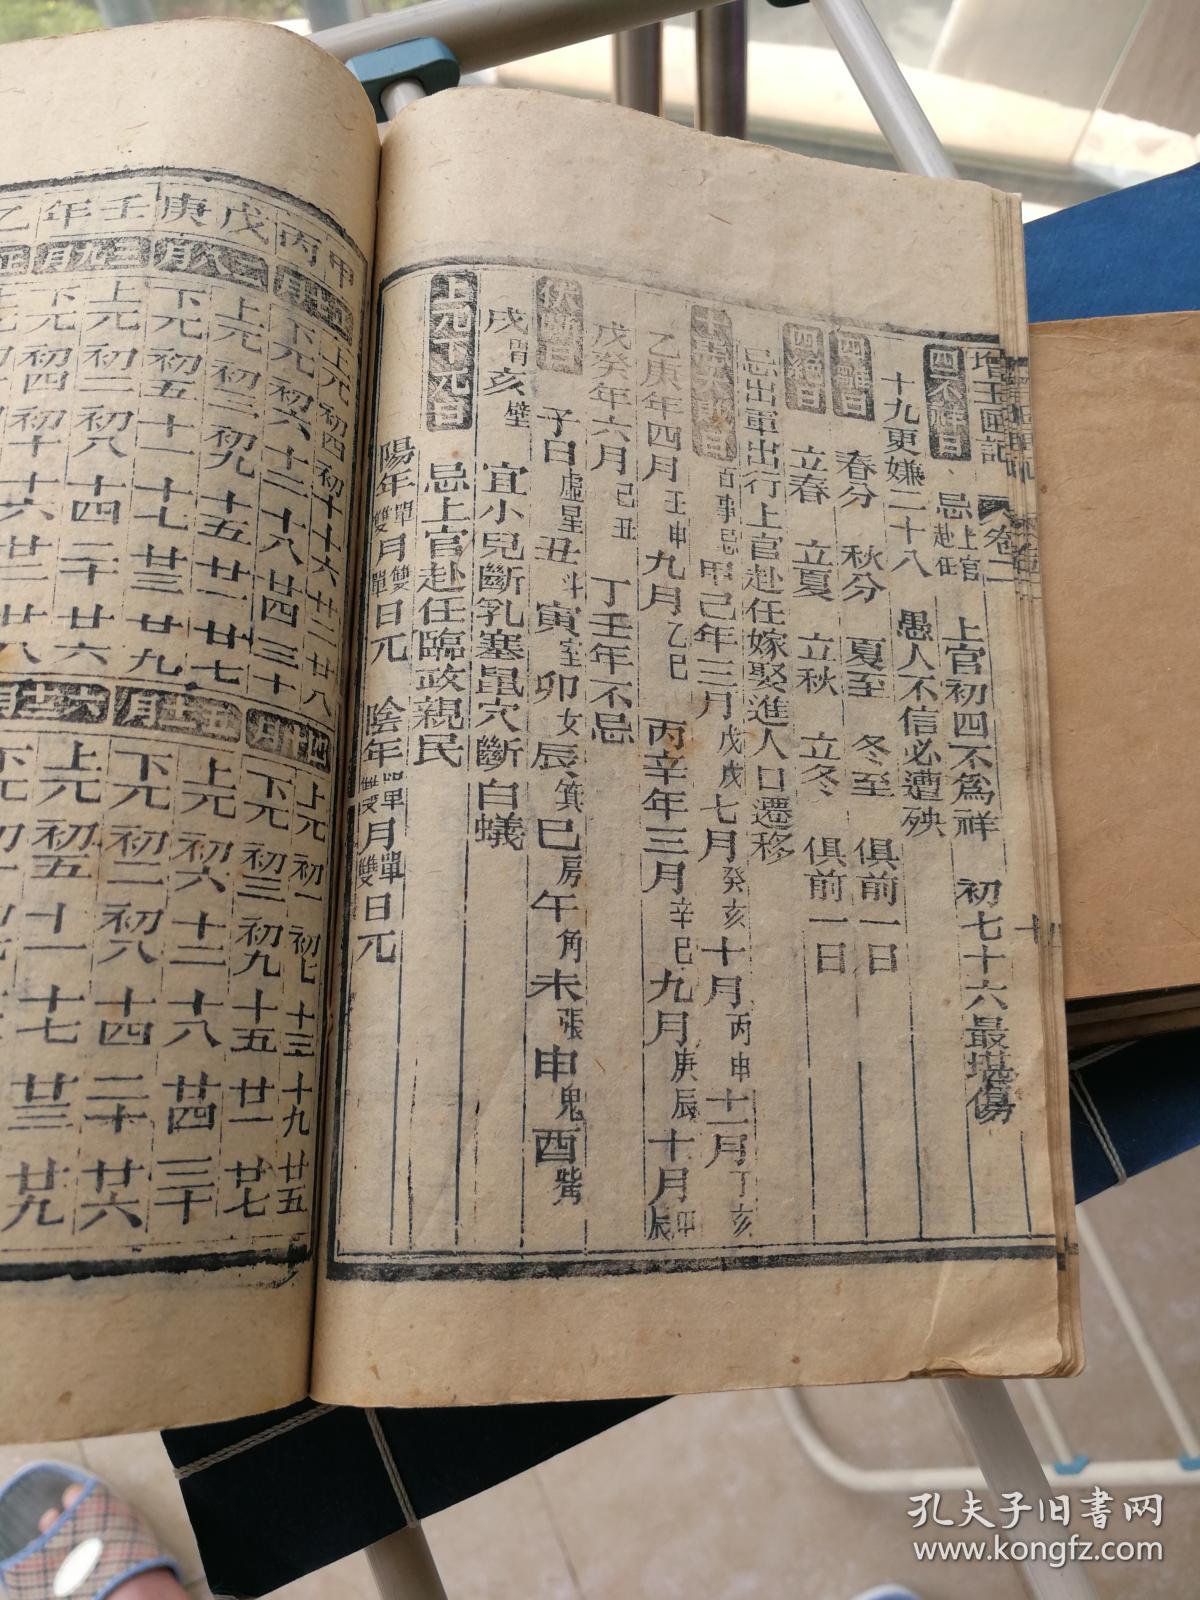 增玉匣記 卷二 十
四不祥日 忌上官赴任 上官初四不為祥 初七十六最堪傷
十九更嫌二十八 愚人不信必遭殃
四離日 春分 秋分 夏至 冬至 俱前一日
四絕日 立春 立夏 立秋 立冬 俱前一日
忌出軍出行上官赴任嫁娶進人口遷移
百事忌 甲己年三月戊戌七月癸亥十月丙申十一月丁亥
乙庚年四月壬申九月乙巳 丙辛年三月辛巳九月庚辰十月甲辰
戊癸年六月己丑 丁壬年不忌
伏斷日 子日虛星丑斗寅室卯女辰箕巳房午角未張申鬼酉觜
戌胃亥壁 宜小兒斷乳塞鼠穴斷白蟻
上兀下兀日 忌上官赴任臨政親民
陽年單雙月雙單日兀 陰年單雙月單雙日兀
甲 丙 戊 庚 壬 年 乙
上兀 初四 初十 十六 廿二 廿八
下兀 初六 十二 十八 廿四 三十
上兀 初三 初九 十五 廿一 廿七
下兀 初五 十一 十七 廿三 廿九
上兀 初二 初八 十四 二十 廿六
下兀 初四 初十 十六 廿二 廿八
上兀 初一 初七 十三 十九 廿五
下兀 初三 初九 十五 廿一 廿七
上兀 初六 十二 十八 廿四 三十
下兀 初二 初八 十四 二十 廿六
上兀 初五 十一 十七 廿三 廿九
孔夫子旧书网
www.kongfz.com